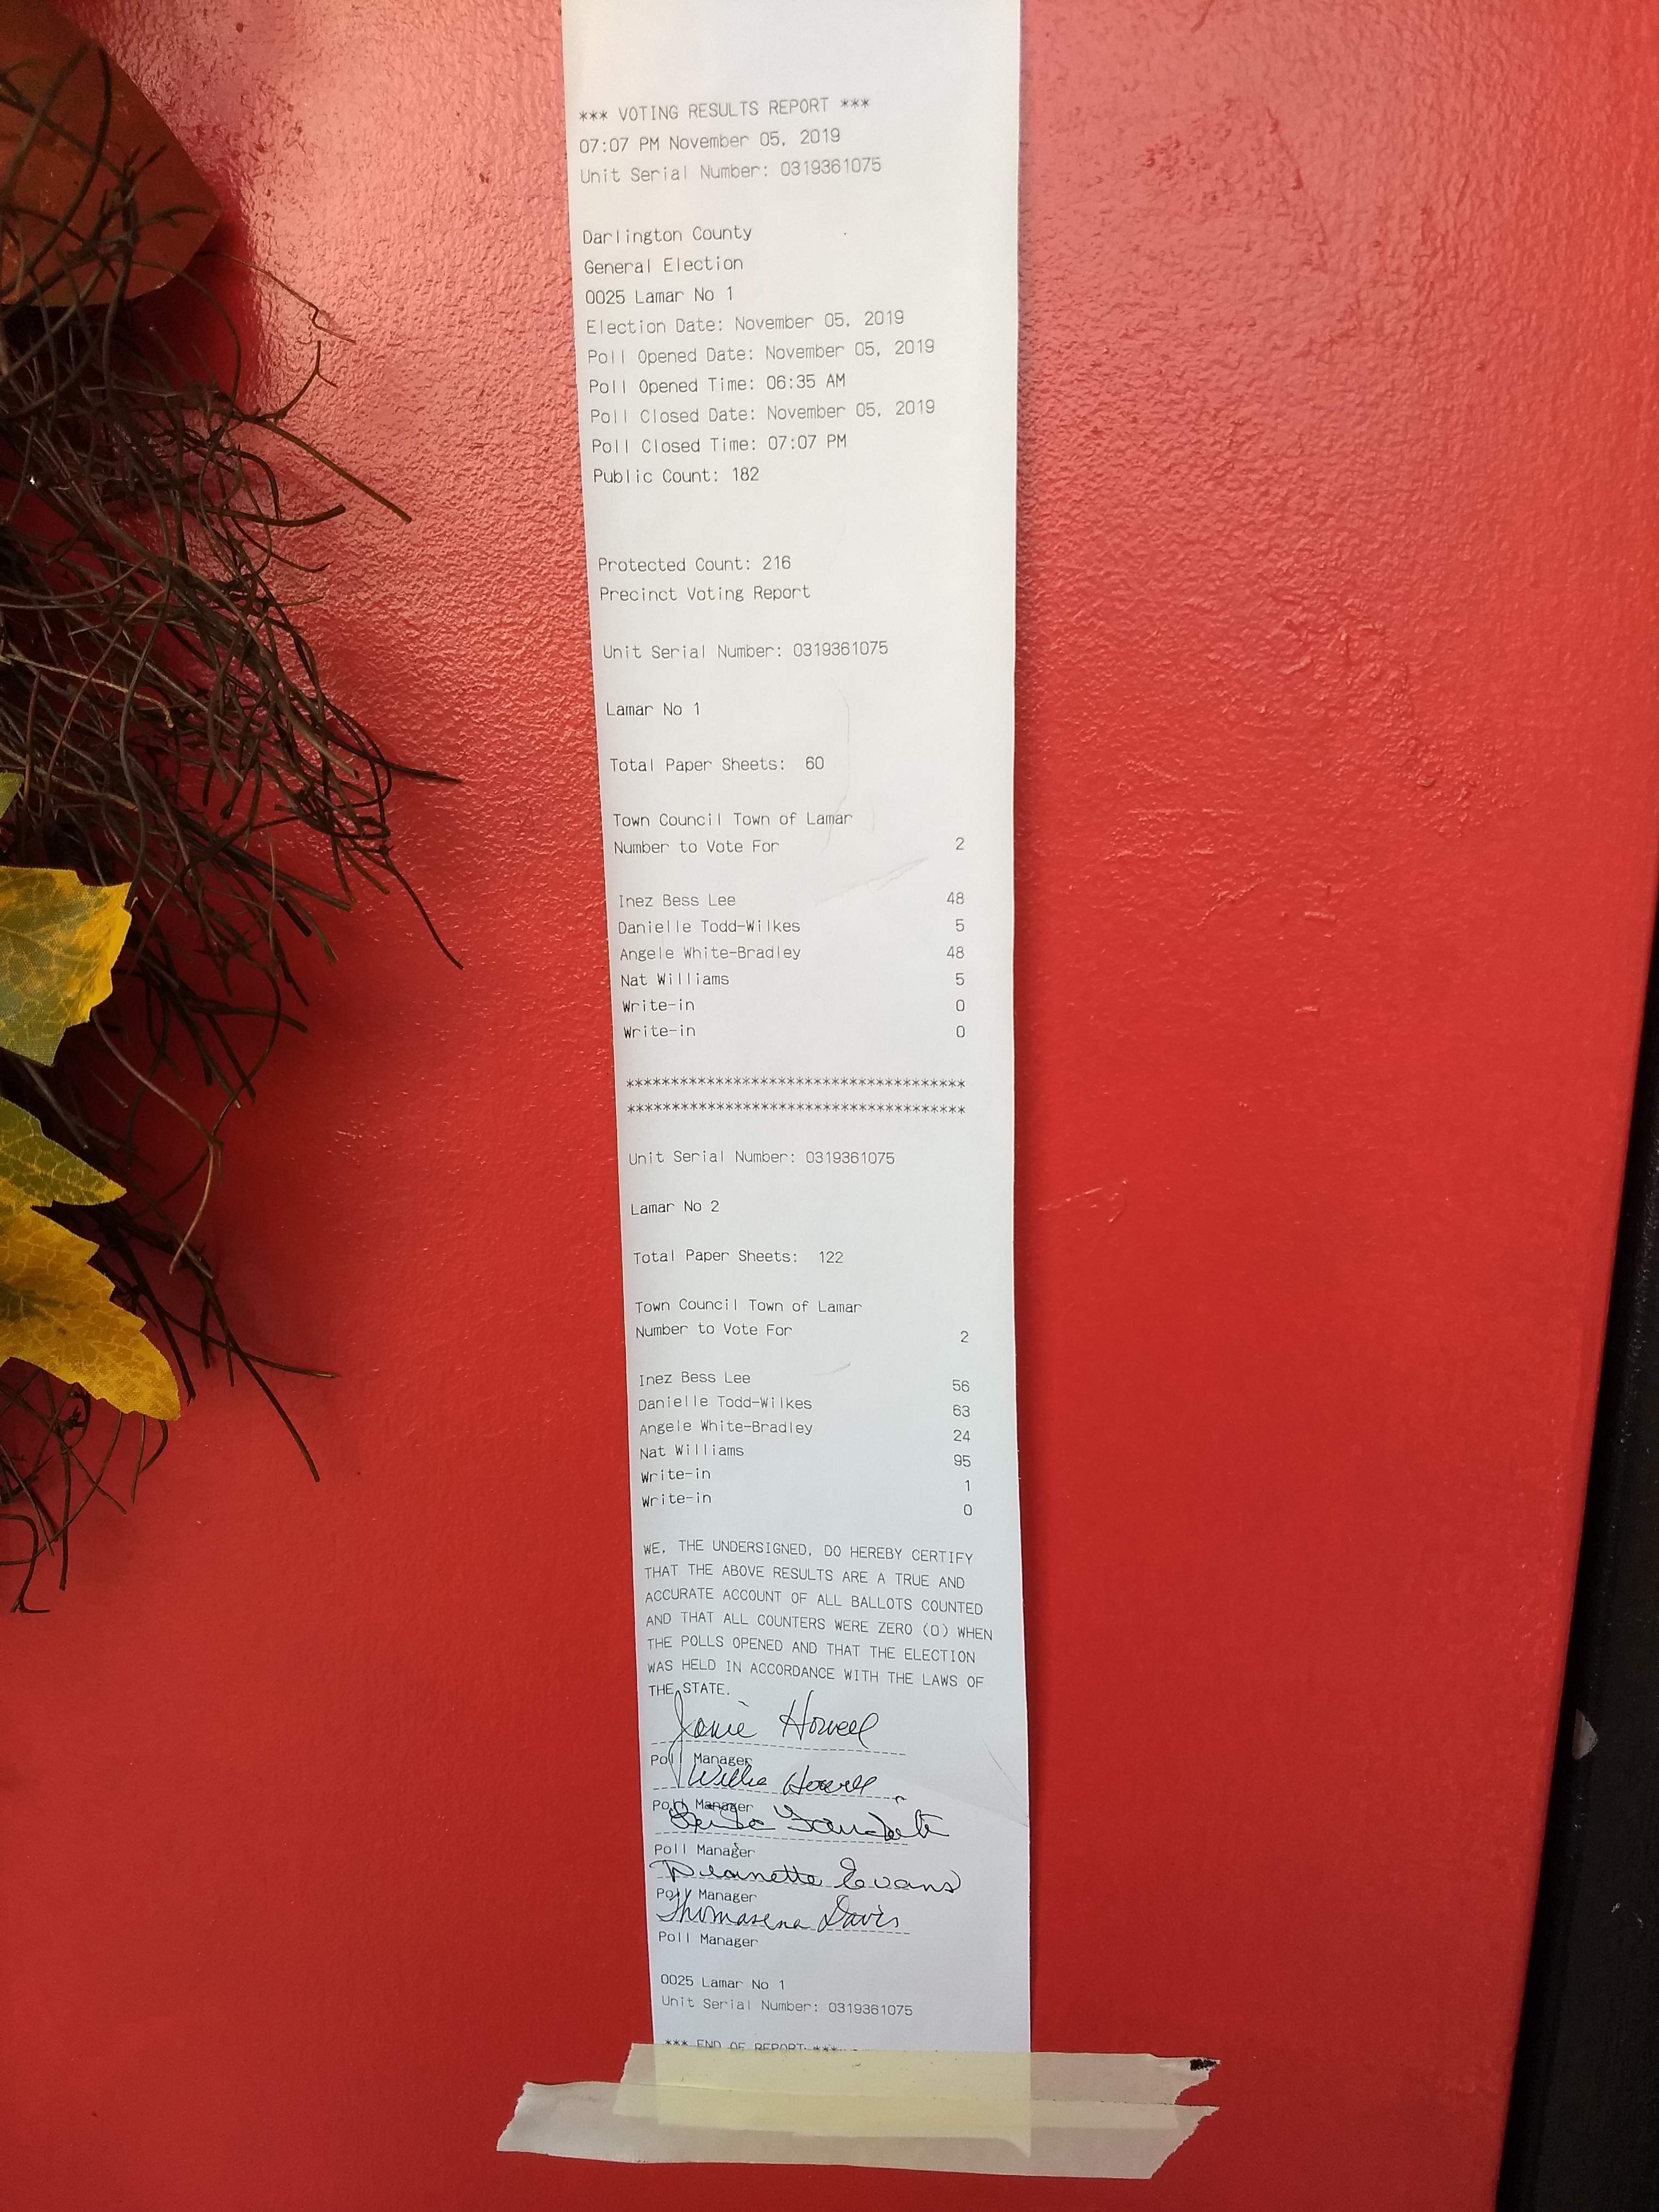 *** VOTING RESULTS REPORT ***
07:07 PM November 05, 2019
Unit Serial Number: 0319361075
Darlington County
General Election
0025 Lamar No 1
Election Date: November 05, 2019
Poll Opened Date: November 05, 2019
Poll Opened Time: 06:35 AM
Poll Closed Date: November 05, 2019
Poll Closed Time: 07:07 PM
Public Count: 182
Protected Count: 216
Precinct Voting Report
Unit Serial Number: 0319361075
Lamar No 1
Total Paper Sheets: 60
Town Council Town of Lamar
Number to Vote For 2
Inez Bess Lee 48
Danielle Todd-Wilkes 5
Angele White-Bradley 48
Nat Williams 5
Write-in 0
Write-in 0
**************************************
**************************************
Unit Serial Number: 0319361075
Lamar No 2
Total Paper Sheets: 122
Town Council Town of Lamar
Number to Vote For 2
Inez Bess Lee 56
Danielle Todd-Wilkes 63
Angele White-Bradley 24
Nat Williams 95
Write-in 1
Write-in 0
WE, THE UNDERSIGNED, DO HEREBY CERTIFY
THAT THE ABOVE RESULTS ARE A TRUE AND
ACCURATE ACCOUNT OF ALL BALLOTS COUNTED
AND THAT ALL COUNTERS WERE ZERO (0) WHEN
THE POLLS OPENED AND THAT THE ELECTION
WAS HELD IN ACCORDANCE WITH THE LAWS OF
THE STATE.
Janie Howell
Poll Manager
Willie Howell
Poll Manager
Poll Manager
Deanette Evans
Poll Manager
Thomasena Davis
Poll Manager
0025 Lamar No 1
Unit Serial Number: 0319361075
*** END OF REPORT ***